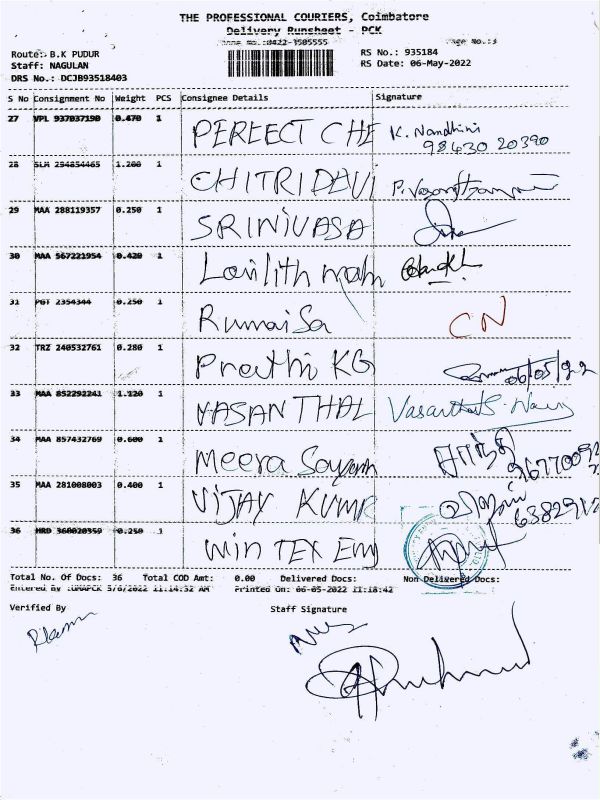 THE PROFESSIONAL COURIERS, Coimbatore
Delivery Runsheet - PCK
Phone No.:0422-4505555 Page No.:3
Route: B.K PUDUR RS No.: 935184
Staff: NAGULAN RS Date: 06-May-2022
DRS No.: DCJB93518403
S No Consignment No Weight PCS Consignee Details Signature
27 VPL 937037190 0.470 1 PERFECT CHE K. Nandhini
98430 20390
28 SLM 254854465 1.200 1 CHITRIDEVI
29 MAA 288119357 0.250 1 SRINIVASA
30 MAA 567221954 0.420 1
31 PGT 2354344 0.250 1 RumaiSa CN
32 TRZ 240532761 0.280 1 Preethi KG 06/05/22
33 MAA 852292241 1.120 1 VASANTHAL
34 MAA 857432769 0.600 1 Meera சாந்தி
9677009
35 MAA 281008003 0.400 1 VIJAY KUMR
638291
36 HRD 360020359 0.250 1 Win TEX Eng
Total No. Of Docs: 36 Total COD Amt: 0.00 Delivered Docs: Non Delivered Docs:
Entered By :UMAPCK 5/6/2022 11:14:52 AM Printed On: 06-05-2022 11:18:42
Verified By Staff Signature